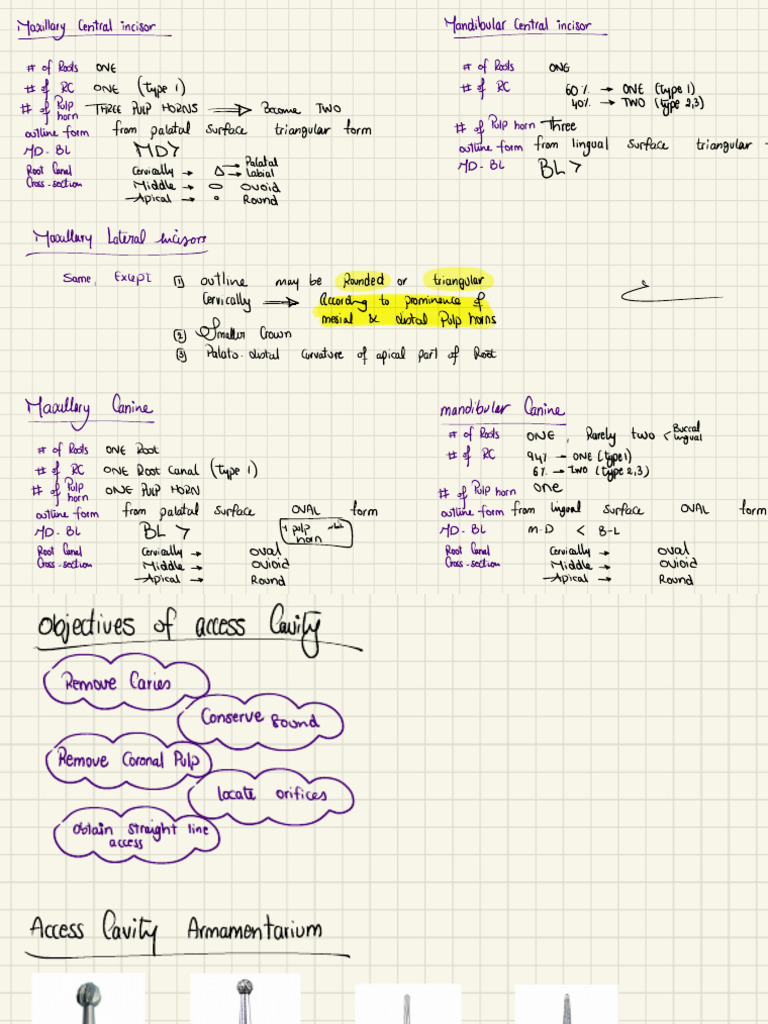 Maxillary Central incisor
# of Roots ONE
# of RC ONE (type 1)
# of Pulp horn THREE PULP HORNS ⟹ Become TWO
outline form from palatal surface triangular form
MD - BL MD >
Root Canal Cross-section
Cervically → △ → Palatal → Labial
Middle → ⬭ Ovoid
Apical → ∘ Round
Mandibular Central incisor
# of Roots ONE
# of RC 60% → ONE (type 1)
40% → TWO (type 2,3)
# of Pulp horn Three
outline form from lingual surface triangular
MD - BL BL >
Maxillary Lateral incisors
Same, Exept ① outline may be Rounded or triangular
Cervically ⟹ According to prominence of
mesial & distal Pulp horns
② Smaller Crown
③ Palato-distal curvature of apical part of Root
Maxillary Canine
# of Roots ONE Root
# of RC ONE Root canal (type 1)
# of Pulp horn ONE PULP HORN
outline form from palatal surface OVAL form
MD - BL BL >
1 pulp horn
Root Canal Cross-section
Cervically → oval
Middle → ovioid
Apical → Round
mandibular Canine
# of Roots ONE, Rarely two < Buccal lingual
# of RC 94% → ONE (type 1)
6% → Two (type 2,3)
# of Pulp horn one
outline form from lingual surface OVAL form
MD - BL M-D < B-L
Root Canal Cross-section
Cervically → oval
Middle → ovioid
Apical → Round
Objectives of access Cavity
Remove Caries
Conserve sound
Remove Coronal Pulp
locate orifices
Obtain straight line
access
Access Cavity Armamentarium